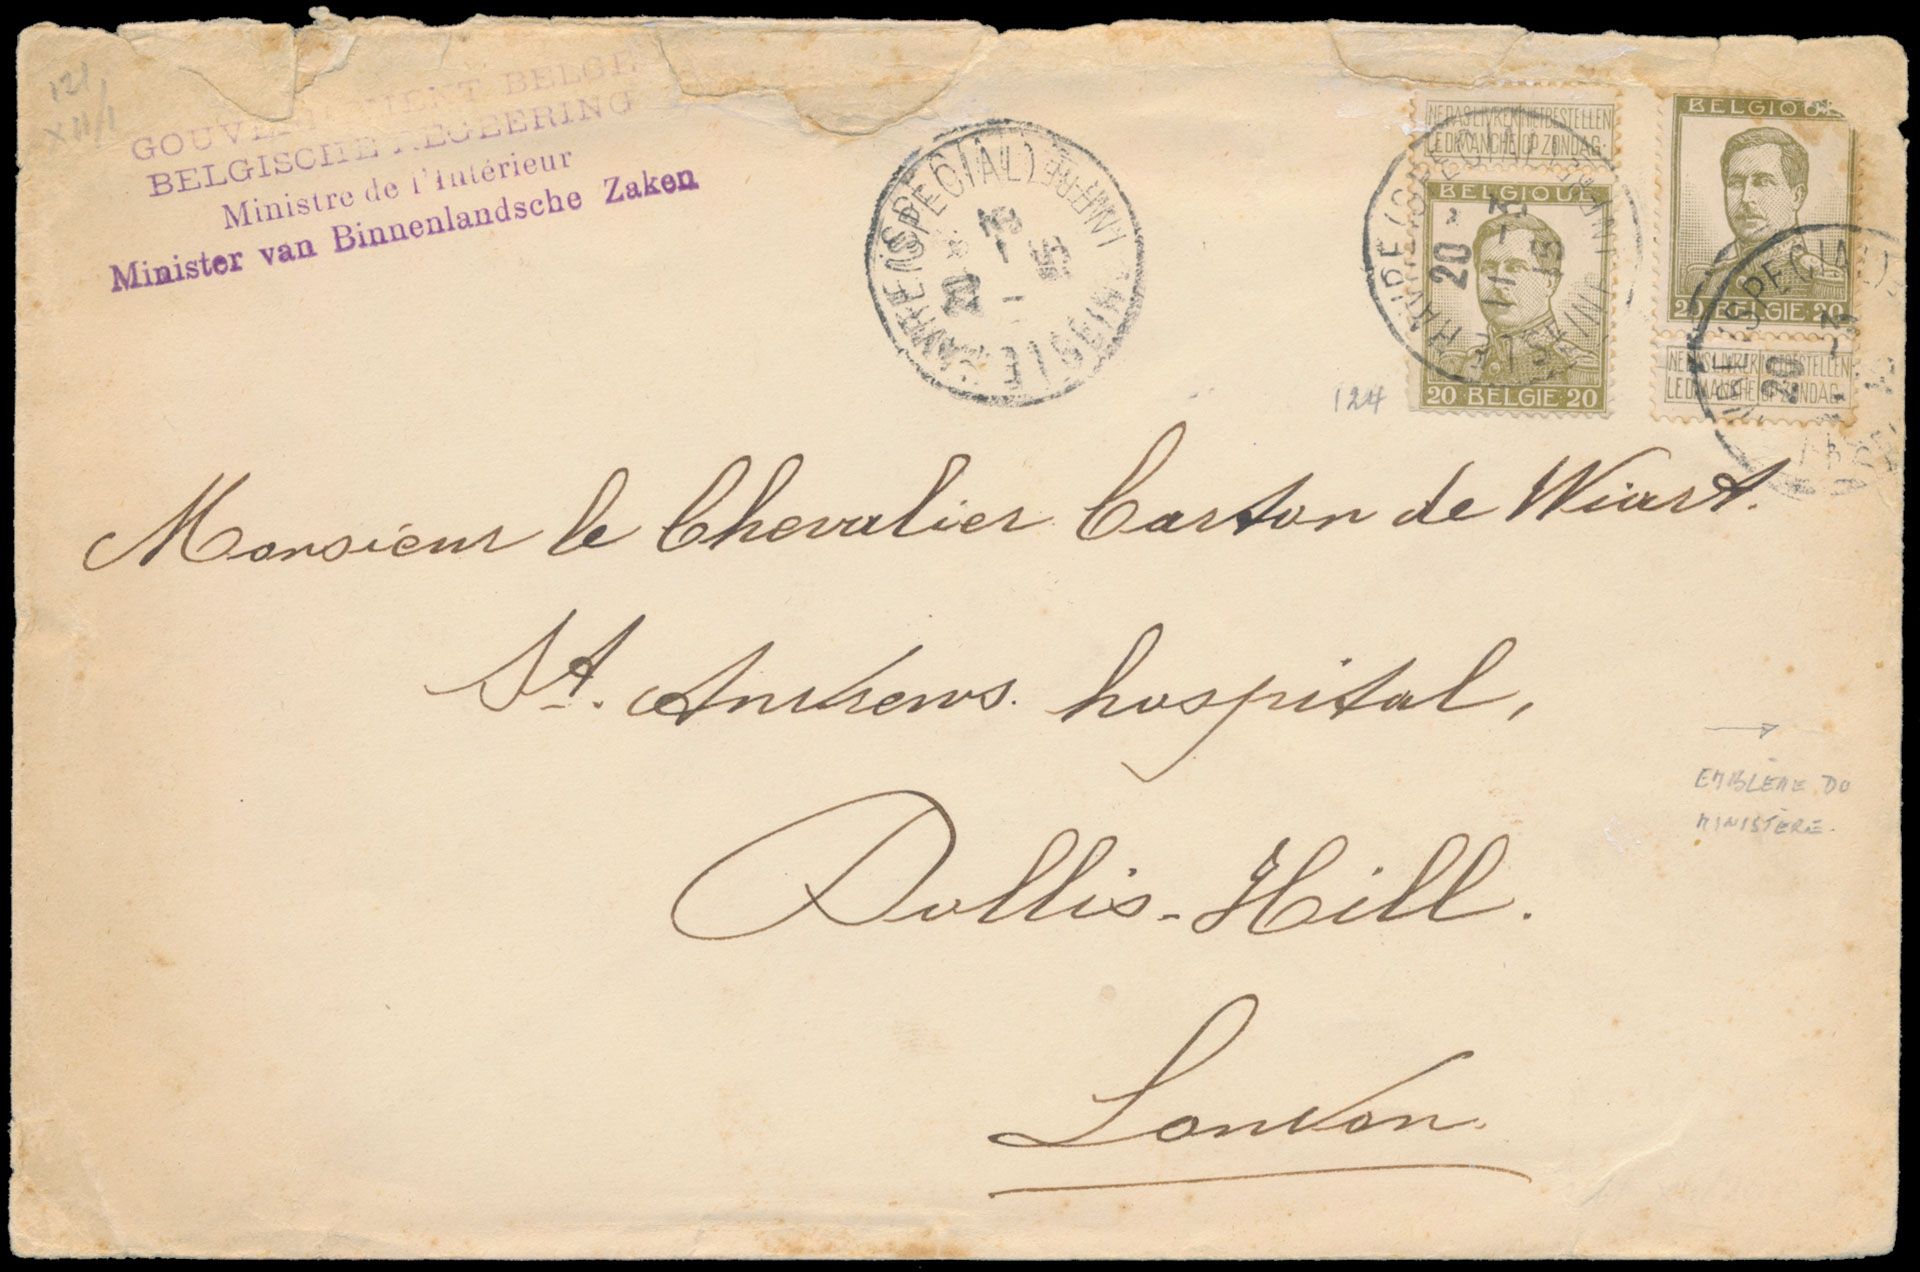 121
XII/1
GOUVERNEMENT BELGE
BELGISCHE REGEERING
Ministre de l'Intérieur
Minister van Binnenlandsche Zaken
HAVRE (SPECIAL)
NE PAS LIVRER NIET BESTELLEN
LE DIMANCHE OP ZONDAG
BELGIQUE
20 BELGIE 20
HAVRE (SPECIAL)
20
15
BELGIQUE
20 BELGIE 20
NE PAS LIVRER NIET BESTELLEN
LE DIMANCHE OP ZONDAG
(SPECIAL)
124
Monsieur le Chevalier Carton de Wiart.
St. Andrews. hospital,
Dollis-Hill.
London.
EMBLÈME DU
MINISTÈRE.